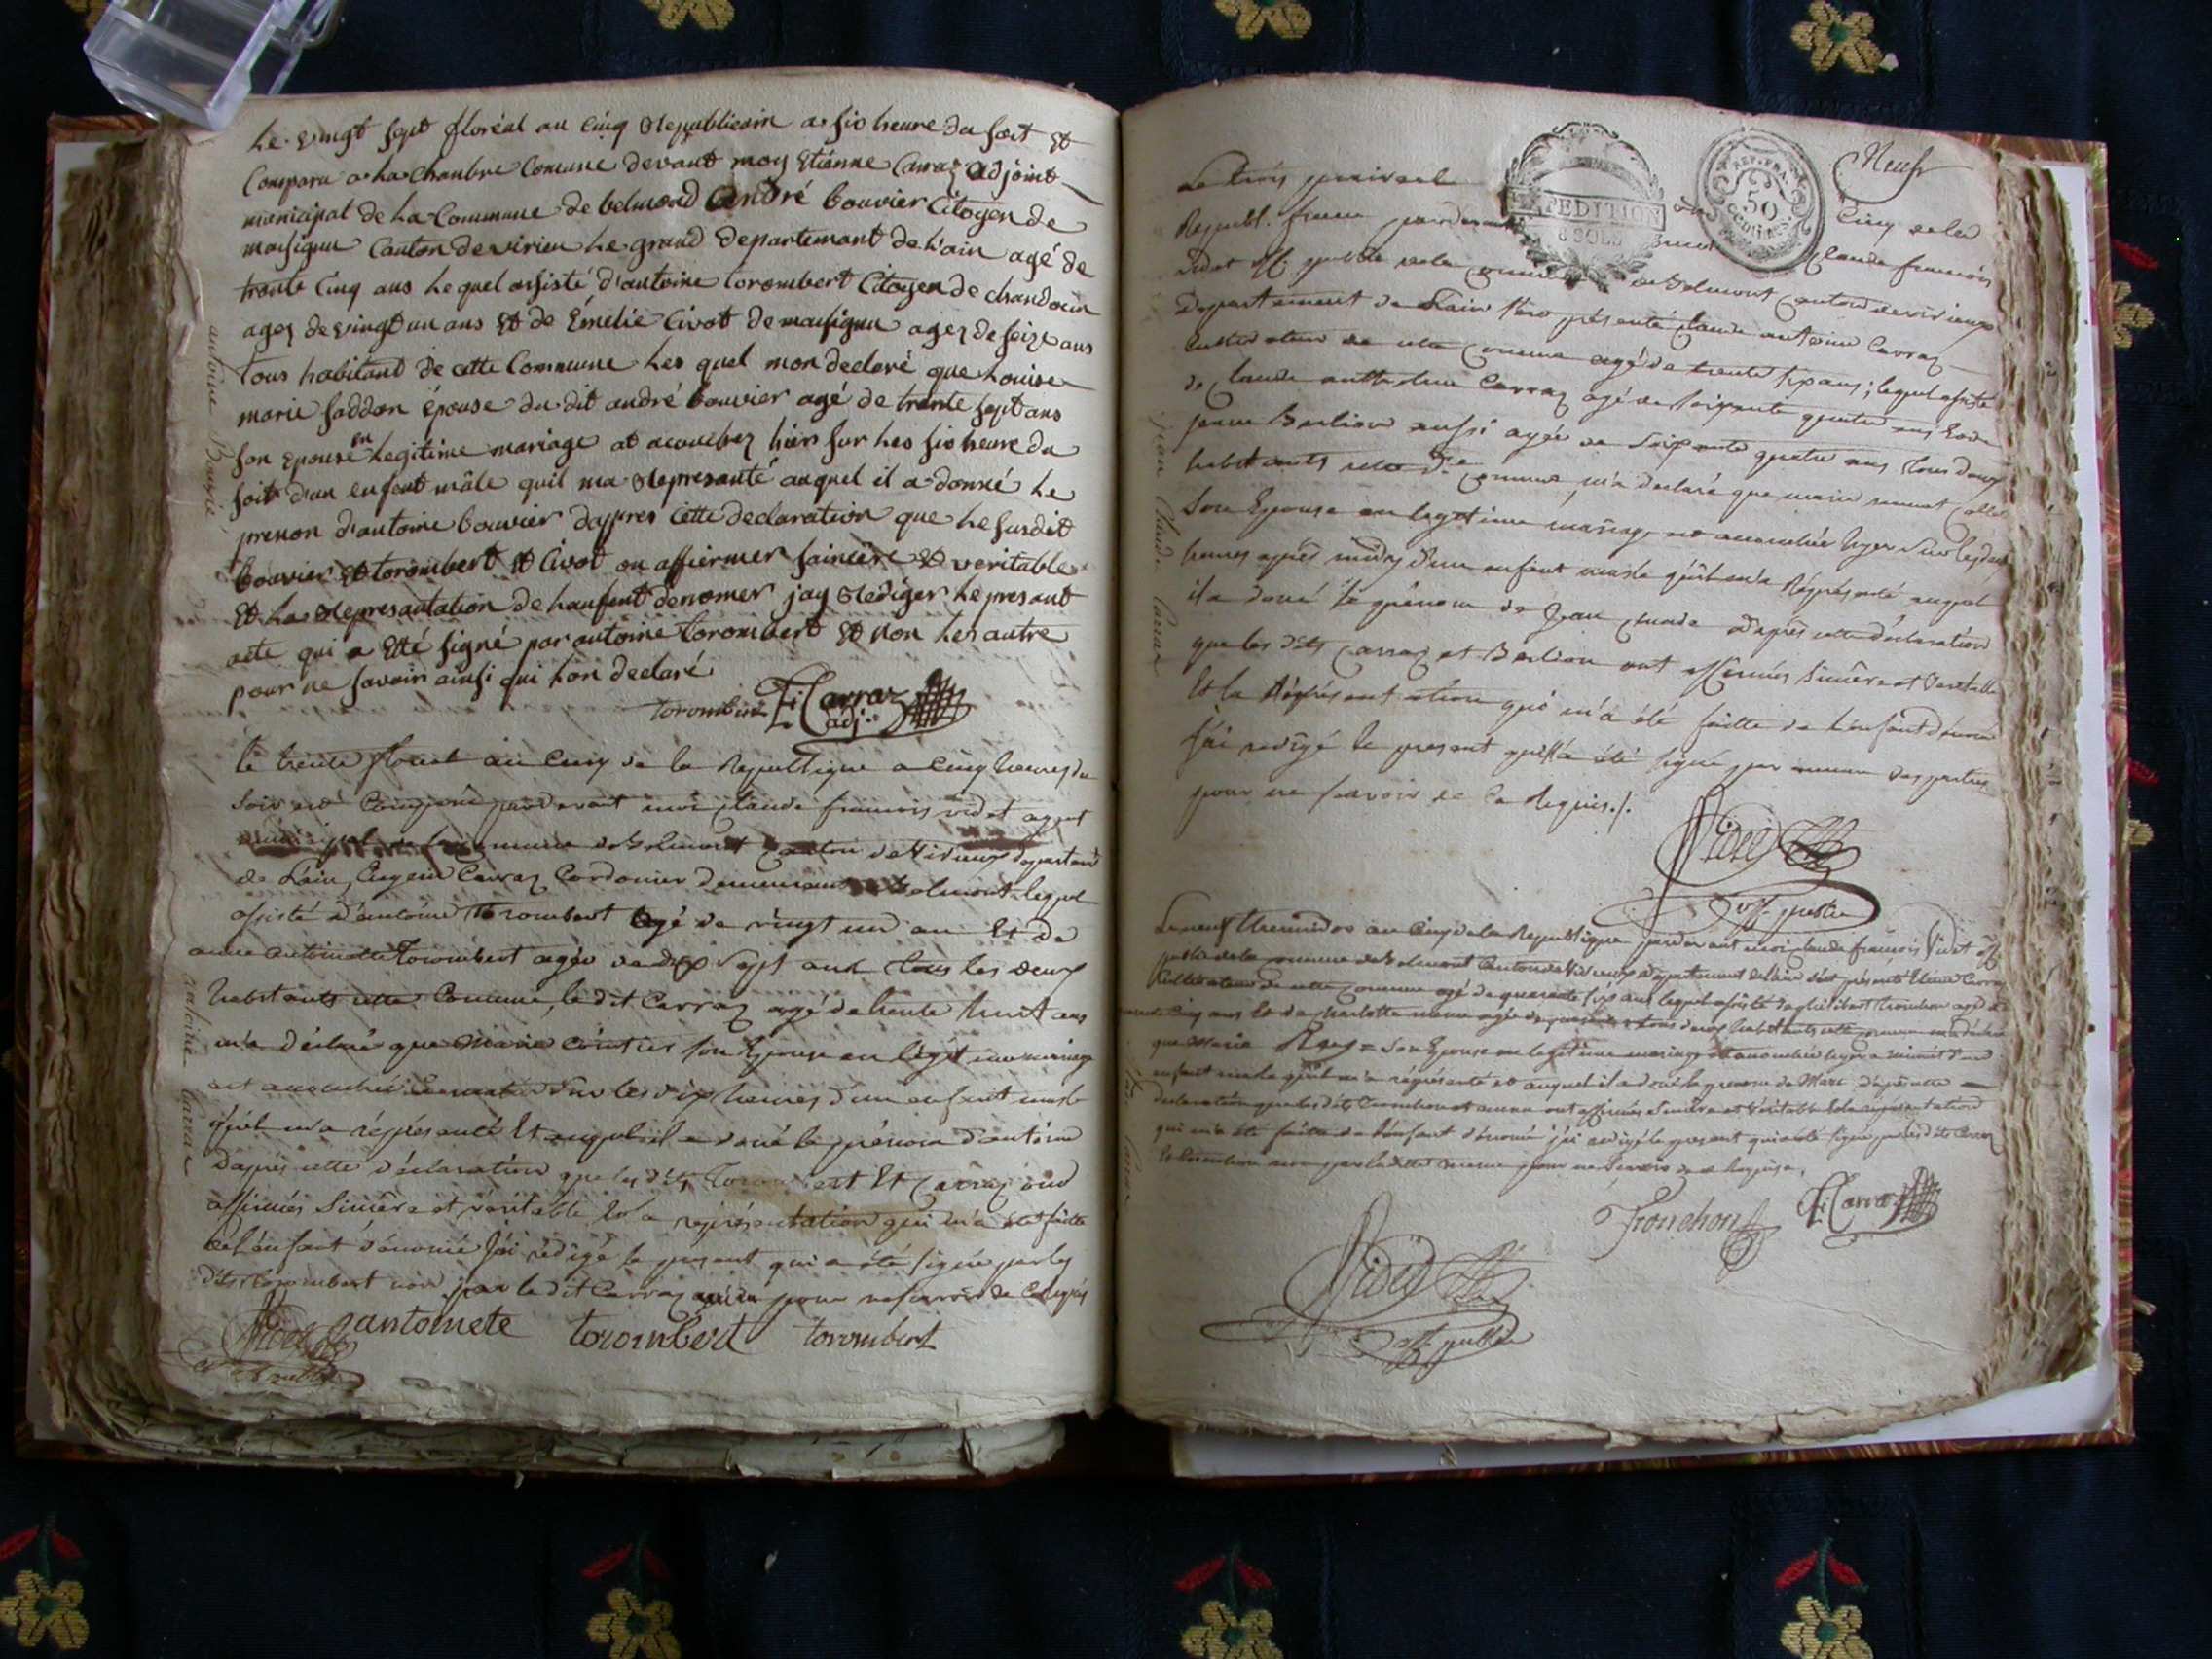 Le vingt sept floréal an cinq Republicain a six heure du soit Et
Compara a la chambre Comune devant moy Etienne Carraz adjoint
municipal de la Commune de belmond André bouvier Citoyen de
massigneu Canton de virieu le grand Departemant de l'ain agé de
trante Cinq ans lequel assisté d'antoine torombert Citoyen de
agez de vingt un ans Et de Émélie Civot de massigneu agez de seize ans
tous habitand de cette Commune les quel mon declaré que Louise
marie faddon épouse du dit andré bouvier agé de trante sept ans
son epouse en legitime mariage at acouchez hier sur les six heure du
soit d'un enfent mâle quil ma Represanté auquel il a donné le
prenon d'antoine bouvier dappres Cette declaration que le susdit
bouvier Et torombert Et Civot on affiermer saincère Et veritable
Et la Represantation de lanfent denomer jay Rediger le presant
acte qui a Etté signé par antoine torombert Et non les autre
pour ne savoir ainsi qui lon declaré
torombert E. Carraz
adj.
antoine Bouvié
le trente floreal an cinq de la Republique a cinq heures du
soir est Comparu pardevant moi claude francois videt agent
commune de Belmont canton de Virieux departement
de L'ain, Eugene Carraz Cordonier demeurant a Belmont lequel
assisté d'antoine Torombert agé de vingt un an Et de
anne antoinette torombert agée de dix sept ans tous les deux
habitants cette Commune, le dit Carraz agé de trente huit ans
m'a déclaré que Marie son Epouse en légitime mariage
est accouchée sur les dix heures d'un enfant masle
qu'il m'a répresenté Et auquel il a doné le prénom d'antoine
D'après cette déclaration que les dits Torombert Et Carraz ont
affirmés Sincère et véritable Et la représentation qui m'a été faitte
de l'énfant dénomé J'ai rédigé le présent qui a été signé par les
dits torombert non par le dit Carraz pour ne savoir de ce Requis
Videt antoinete torombert torombert
off. public
antoine Carraz
Neuf
EXPEDITION
8 SOLS
REP. FRA.
50
CENTIMES
Le trois prairial cinq de la
Republ. francc pardevant claude francois
Videt off. public de la comune de Belmont canton de virieux
Departement de L'ain s'est présenté claude antoine Carraz
Cultivateur de cette comune agé de trente six ans; lequel assisté
de claude Carraz agé de soixante quatre ans Et de
jeanne Berlion aussi agée de soixante quatre ans tous deux
habitants cette comune, m'a declaré que marie
Son Epouse en legitime mariage est accouchée hyer sur les deux
heures après midy d'un enfant masle qu'il m'a Représenté auquel
il a doné le prénom de Jean claude D'après cette déclaration
que les dits Carraz et Berlion ont affirmés Sincère et Veritable
Et la Représentation qui m'a été faitte de L'enfant dénomé
J'ai redigé le present qui n'a été signé par aucune des parties
pour ne savoir de ce Requis./.
Videt
off. public
jean Claude Carraz
Le neuf thermidor an cinq de la Republique pardevant moi claude francois Videt off.
public de la comune de Belmont Canton de Virieux departement de L'ain s'est présenté Etiene Carraz
Cultivateur de cette comune agé de quarante six ans lequel assisté de Tronchon agé de
cinq ans Et de charlotte agée de tous deux habitants cette comune m'a declaré
que Marie son Epouse en legitime mariage est accouchée hyer a minuit d'un
enfant masle qu'il m'a répresenté et auquel il a doné le prenom de Marc D'après cette
Declaration que les dits Tronchon et ont affirmés sincère et véritable Et la représentation
qui m'a été faitte de L'enfant dénomé j'ai redigé le present qui a été signé par les dits Carraz
Et Tronchon non par la ditte pour ne Savoir de ce Requise.
Tronchon E. Carraz
Videt
off. public